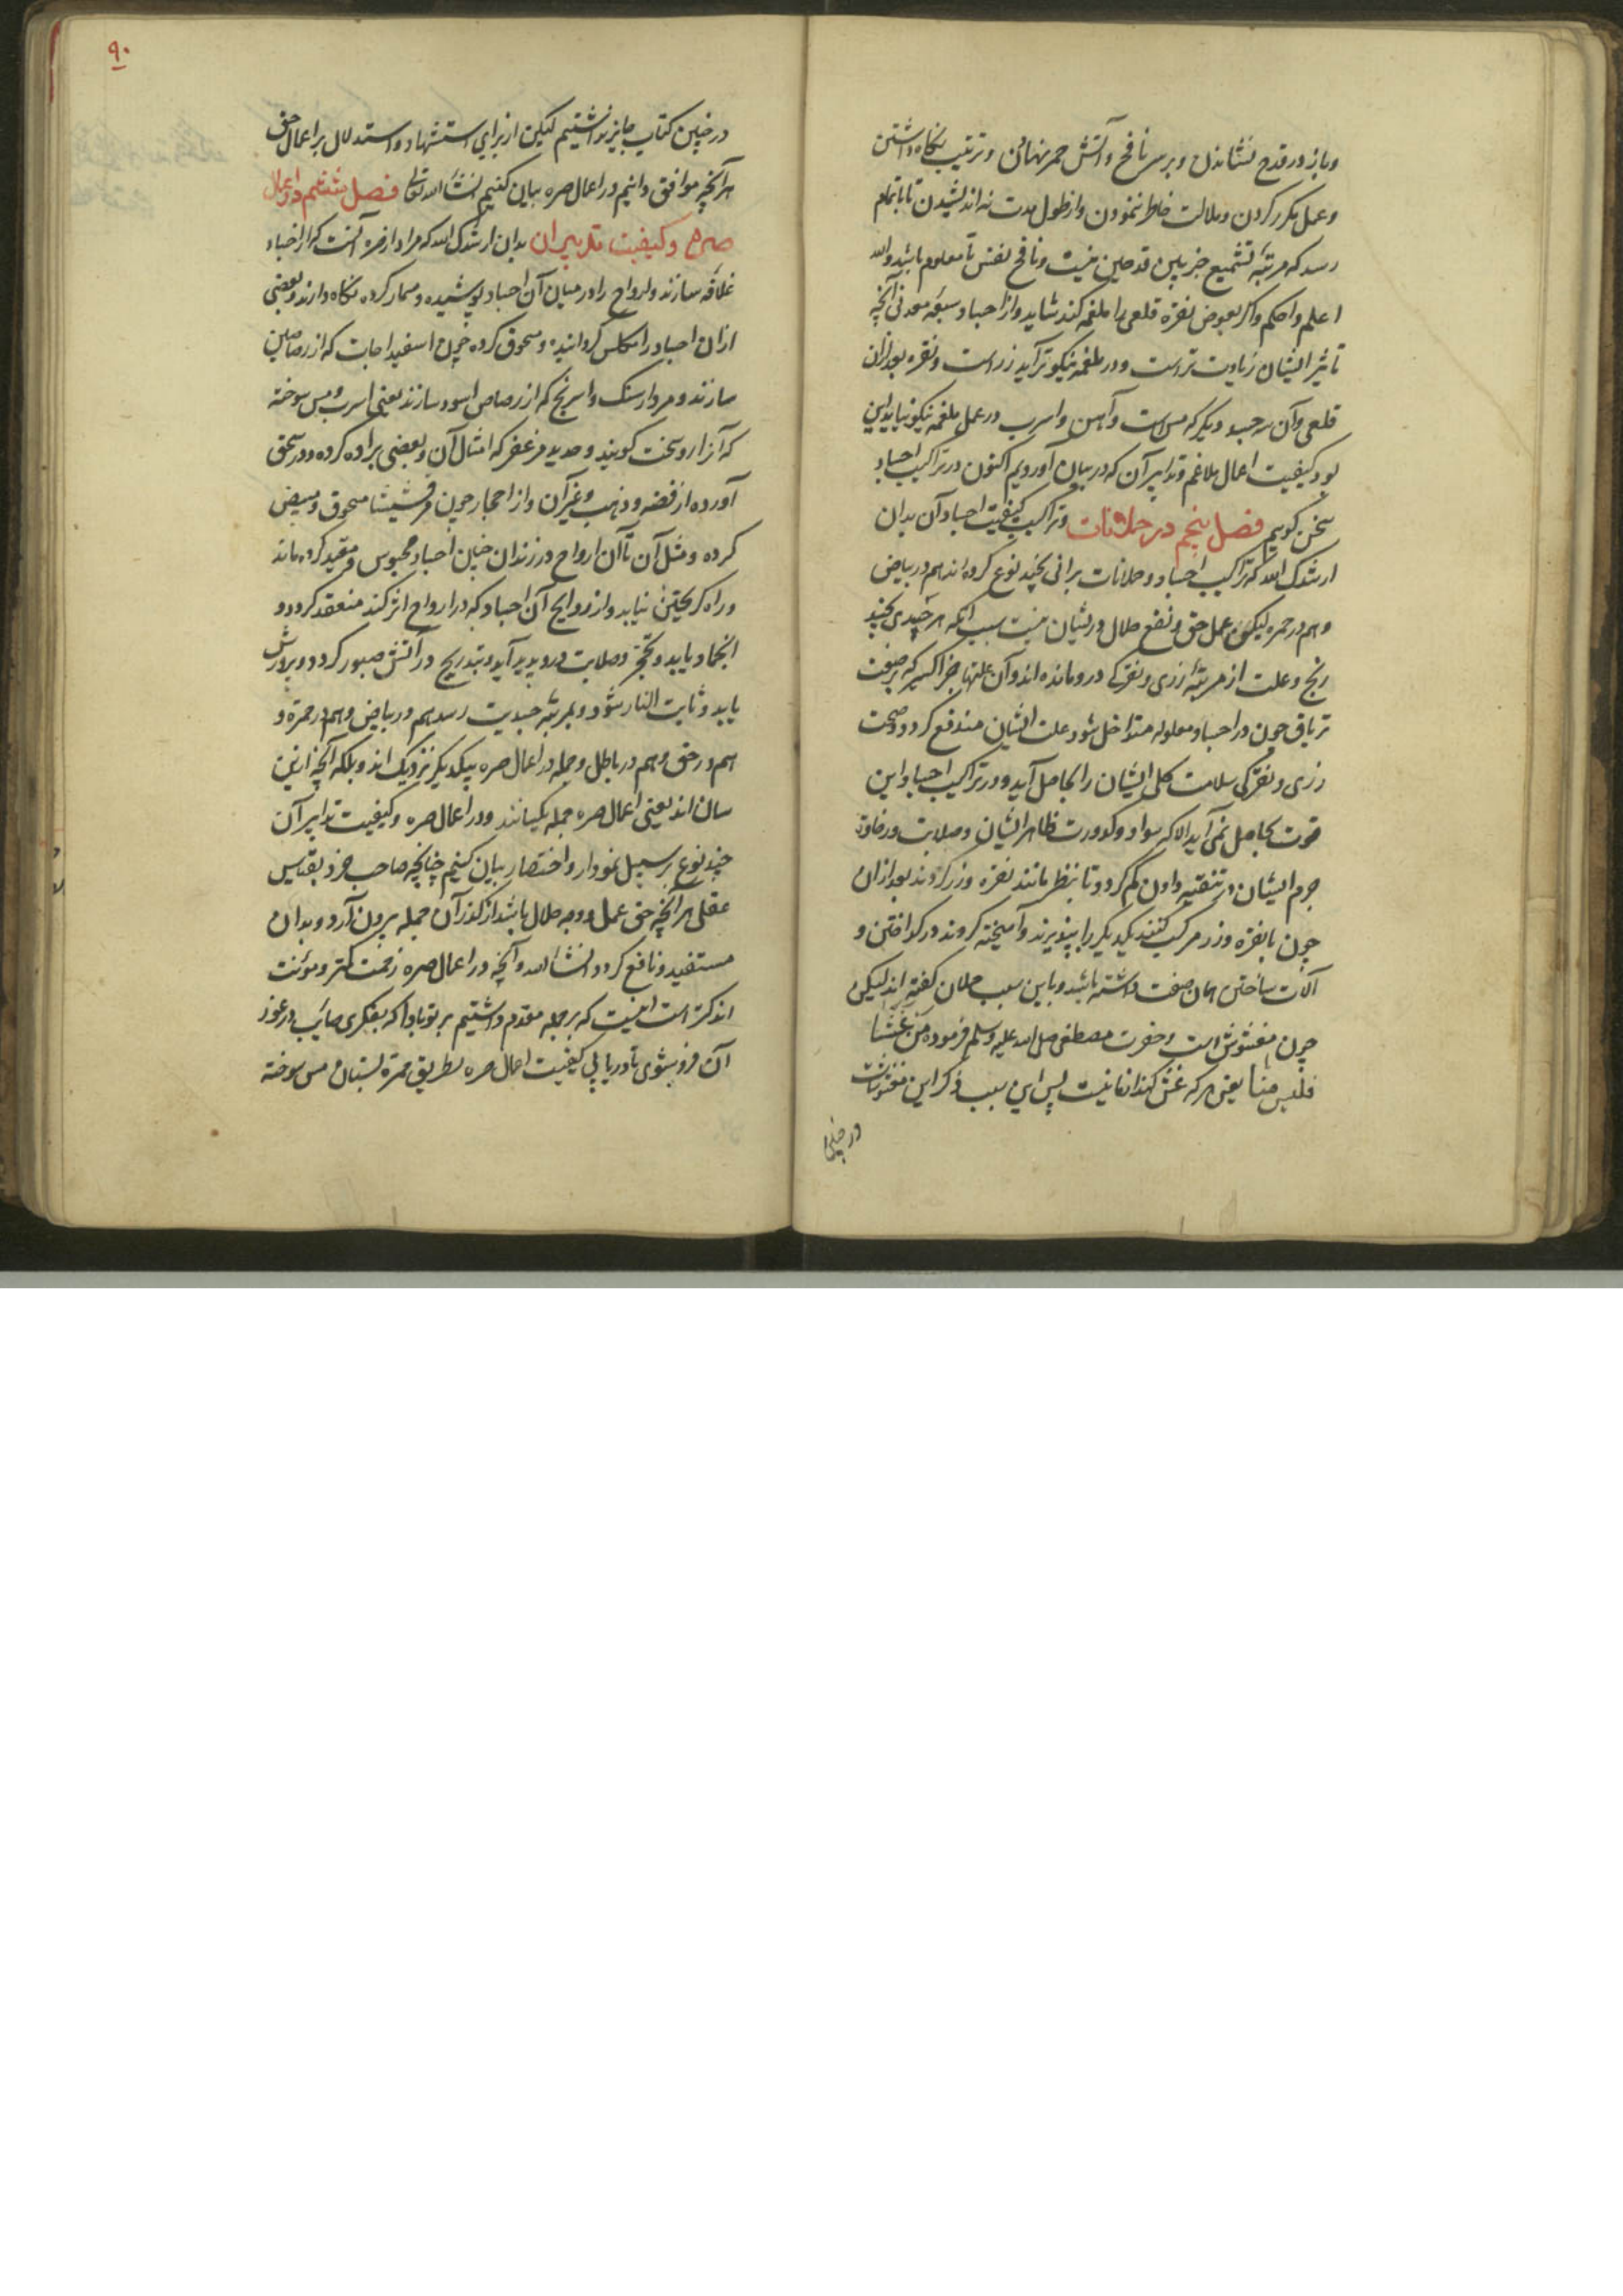 و باز در قدح نشاندن و بر سر نافخ و آتش جمر نهادن و ترتیب نگاه داشتن
و عمل مکرر کردن و ملالت خاطر ننمودن و از طول مدت نه اندیشیدن تا باتمام
رسد که مرتبه تشمیع جز بدین قدحین نیست و نافخ نفس تا معلوم باشد والله
اعلم و احکم و اگر بعوض نقره قلعی را ملغمه کند شاید و از اجساد سبعه معدنی آنچه
تاثیر ایشان زیادت تر است و در ملغمه نیکوتر آید زر است و نقره بعد از آن
قلعی و آن سه جسد دیگر که مس است و آهن و اسرب در عمل ملغمه نیکو نیاید این
بود کیفیت اعمال ملاغم و تدابیر آن که در بیان آوردیم اکنون در تراکیب اجساد
سخن گوییم فصل پنجم در حملانات و تراکیب کیفیت اجساد آن بدان
ارشدک الله که تراکیب اجساد و حملانات برانی بچند نوع کرده اند هم در بیاض
و هم در حمره لیکن عمل حق و نفع حلال در ایشان نیست بسبب آنکه هر جسدی بچند
رنج و علت از مرتبه زری و نقرگی درو مانده اند و آن علتها جز اکسیر که بصفت
تریاق چون در اجساد معلوله متداخل شود علت ایشان مندفع گردد و صحت
زری و نقرگی سلامت کلی ایشان را بحاصل آید و در تراکیب اجساد این
قوت بحاصل نمی آید الا که سواد و کدورت ظاهر ایشان و صلابت و رخاوت
جرم ایشان در تنقیه دادن کم گردد تا بنظر مانند نقره و زر گردند بعد از آن
چون با نقره و زر مرکب کنند یکدیگر را بپذیرند و آمیخته گردند در گداختن و
آلات ساختن همان صفت داشته باشد و باین سبب حملان گفته اند لیکن
چون مغشوش است و حضرت مصطفی صلی الله علیه و سلم فرموده من غشنا
فلیس منا یعنی هر که غش کند از ما نیست پس این سبب ذکر این مغشوشات
در چنین
۹۰
در چنین کتاب جایز نداشتیم لیکن از برای استشهاد و استدلال بر اعمال حق
هر آنچه موافق دانیم در اعمال صره بیان کنیم انشاء الله تعالی فصل ششم در اعمال
صره و کیفیت تدبیر آن بدان ارشدک الله که مراد از صره آنست که از اجساد
غلافه سازند و ارواح را در میان آن اجساد پوشیده و مسمار کرده نگاه دارند و بعضی
از آن اجساد را مکلس گردانیده و مسحوق کرده چون اسفیداجات که از رصاصین
سازند و مردارسنک و اسرنج که از رصاص اسود سازند یعنی اسرب و مس سوخته
که آنرا روسخت گویند و حدید مزعفر که امثال آن و بعضی براده کرده و در سحق
آورده از فضه و ذهب و غیر آن و از احجار چون مرقشیشا مسحوق و مبیض
کرده و مثل آن تا آن ارواح در زندان چنین اجساد محبوس و مقید کرده ماند
و راه گریختن نیابد و از روایح آن اجساد که در ارواح اثر کند منعقد گردد و
انجماد یابد و تحجر و صلابت درو پدید آید و بتدریج در آتش صبور گردد و پرورش
یابد و ثابت النار شود و بمرتبه جسدیت رسد هم در بیاض و هم در حمرة و
هم در حق و هم در باطل و جمله در اعمال صره بیکدیگر نزدیک اند و بلکه آنچه ازین
سان اند یعنی اعمال صره جمله یکسانند و در اعمال صره و کیفیت تدابیر آن
چند نوع بر سبیل نمودار و اختصار بیان کنیم چنانچه صاحب خرد بقیاس
عقلی هر آنچه حق عمل و وجه حلال باشد از گذر آن جمله بیرون آرد و بدان
مستفید و نافع گردد انشاء الله و آنچه در اعمال صره زحمت کمتر و مؤنت
اندکتر است اینست که بر جمله مقدم داشتیم بر تو بادا که بفکری صائب در غور
آن فرو شوی تا دریابی کیفیت اعمال صره بطریق حمرة بستان مس سوخته